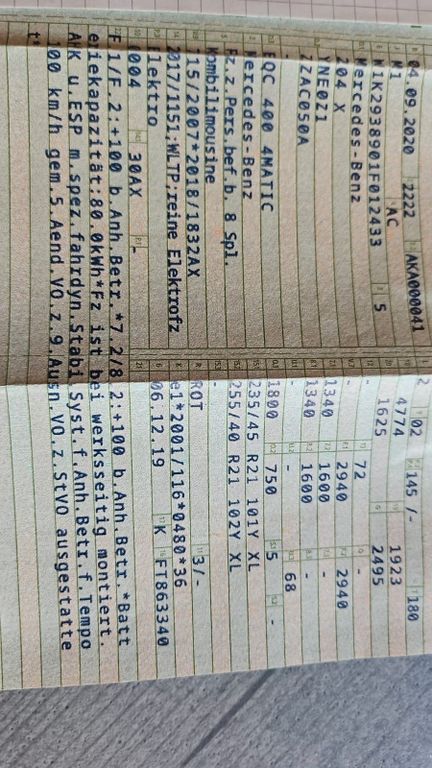 04.09.2020 2222 AKA000041
M1 AC
W1K2938901F012433 5
Mercedes-Benz
204 X
YNE0Z1
ZZAC050A
EQC 400 4MATIC
Mercedes-Benz
Fz.z.Pers.bef.b. 8 Spl.
Kombilimousine
715/2007*2018/1832AX
2017/1151;WLTP;reine Elektrofz
Elektro
0004 30AX -
2 02 145 /- 180
4774 1923
1625 2495
-
- 72 -
- 2940 2940
1340 1600 -
1340 1600 -
- - 68
1800 750 5 -
235/45 R21 101Y XL
255/40 R21 102Y XL
-
ROT 3/-
e1*2001/116*0480*36
06.12.19 K FT863340
F 1/F.2:+100 b.Anh.Betr.*7.2/8.2:+100 b.Anh.Betr.*Batt
eriekapazität:80.0kWh*Fz ist bei werksseitig montiert.
AHK u.ESP m.spez.fahrdyn.Stabi.Syst.f.Anh.Betr.f.Tempo
100 km/h gem.5.Aend.VO.z.9.Ausn.VO.z.StVO ausgestatte
t*